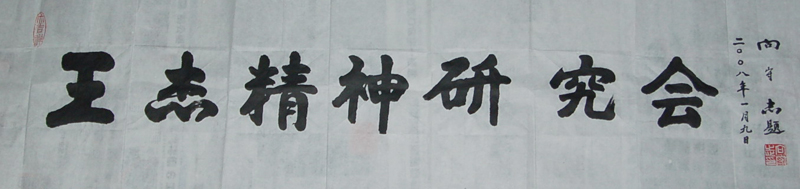 王杰精神研究会
向守志题
二〇〇八年一月九日